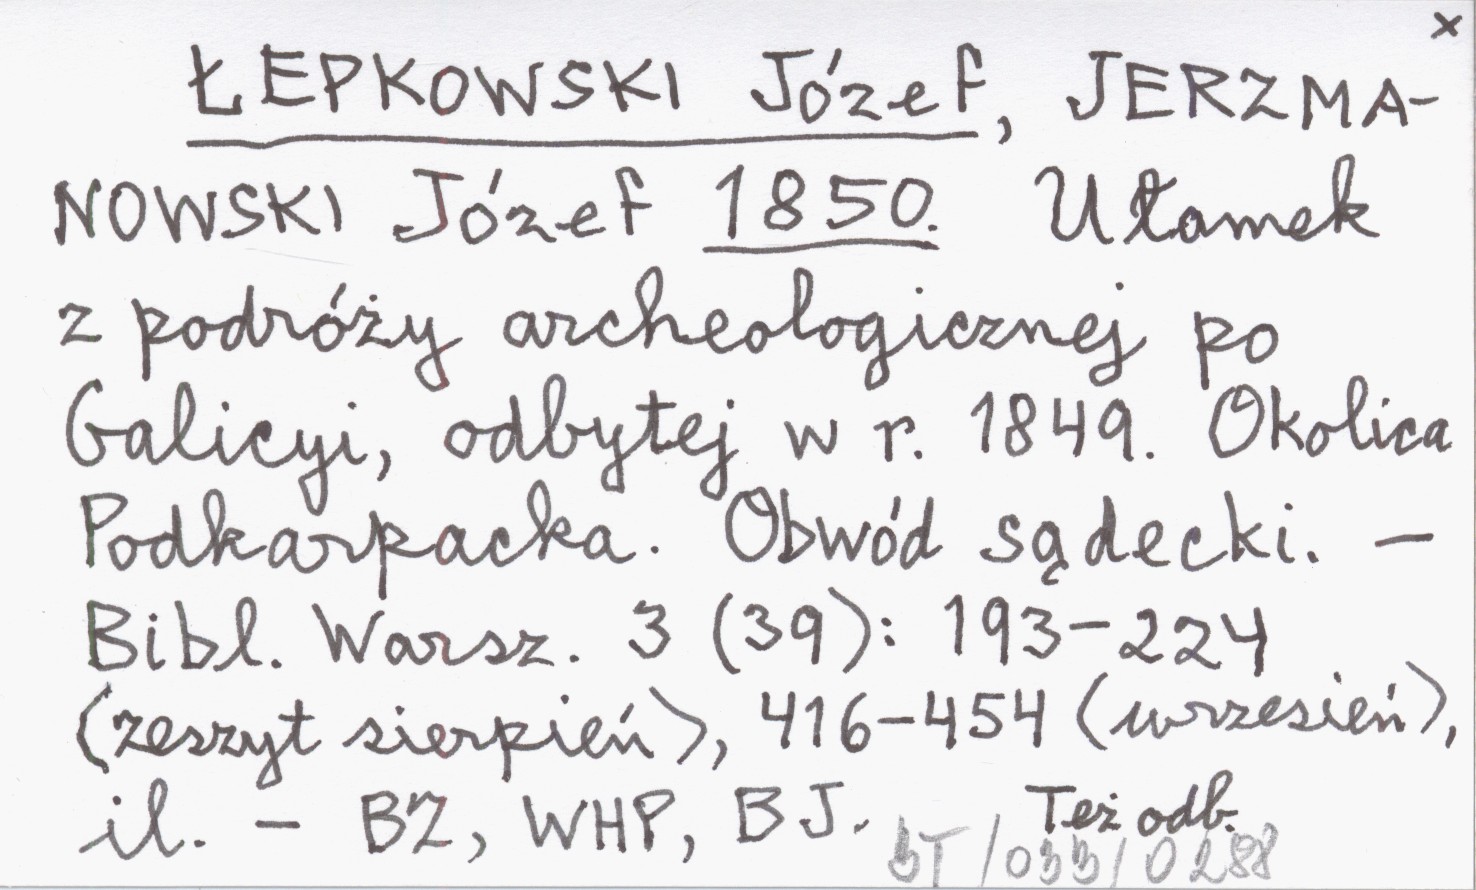 x
ŁEPKOWSKI Józef, JERZMA-
NOWSKI Józef 1850. Ułamek
z podróży archeologicznej po
Galicyi, odbytej w r. 1849. Okolica
Podkarpacka. Obwód sądecki. –
Bibl. Warsz. 3 (39): 193–224
(zeszyt sierpień), 416–454 (wrzesień),
il. – BZ, WHP, BJ. Też odb.
BT/033/0288